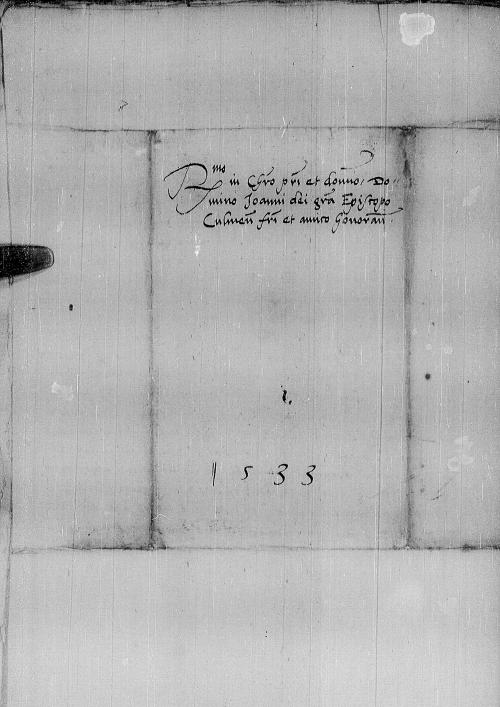 Rmo in Chro pri et domno Do-
mino Joanni dei gra Episcopo
Culmen fri et amico honoran
1.
1533